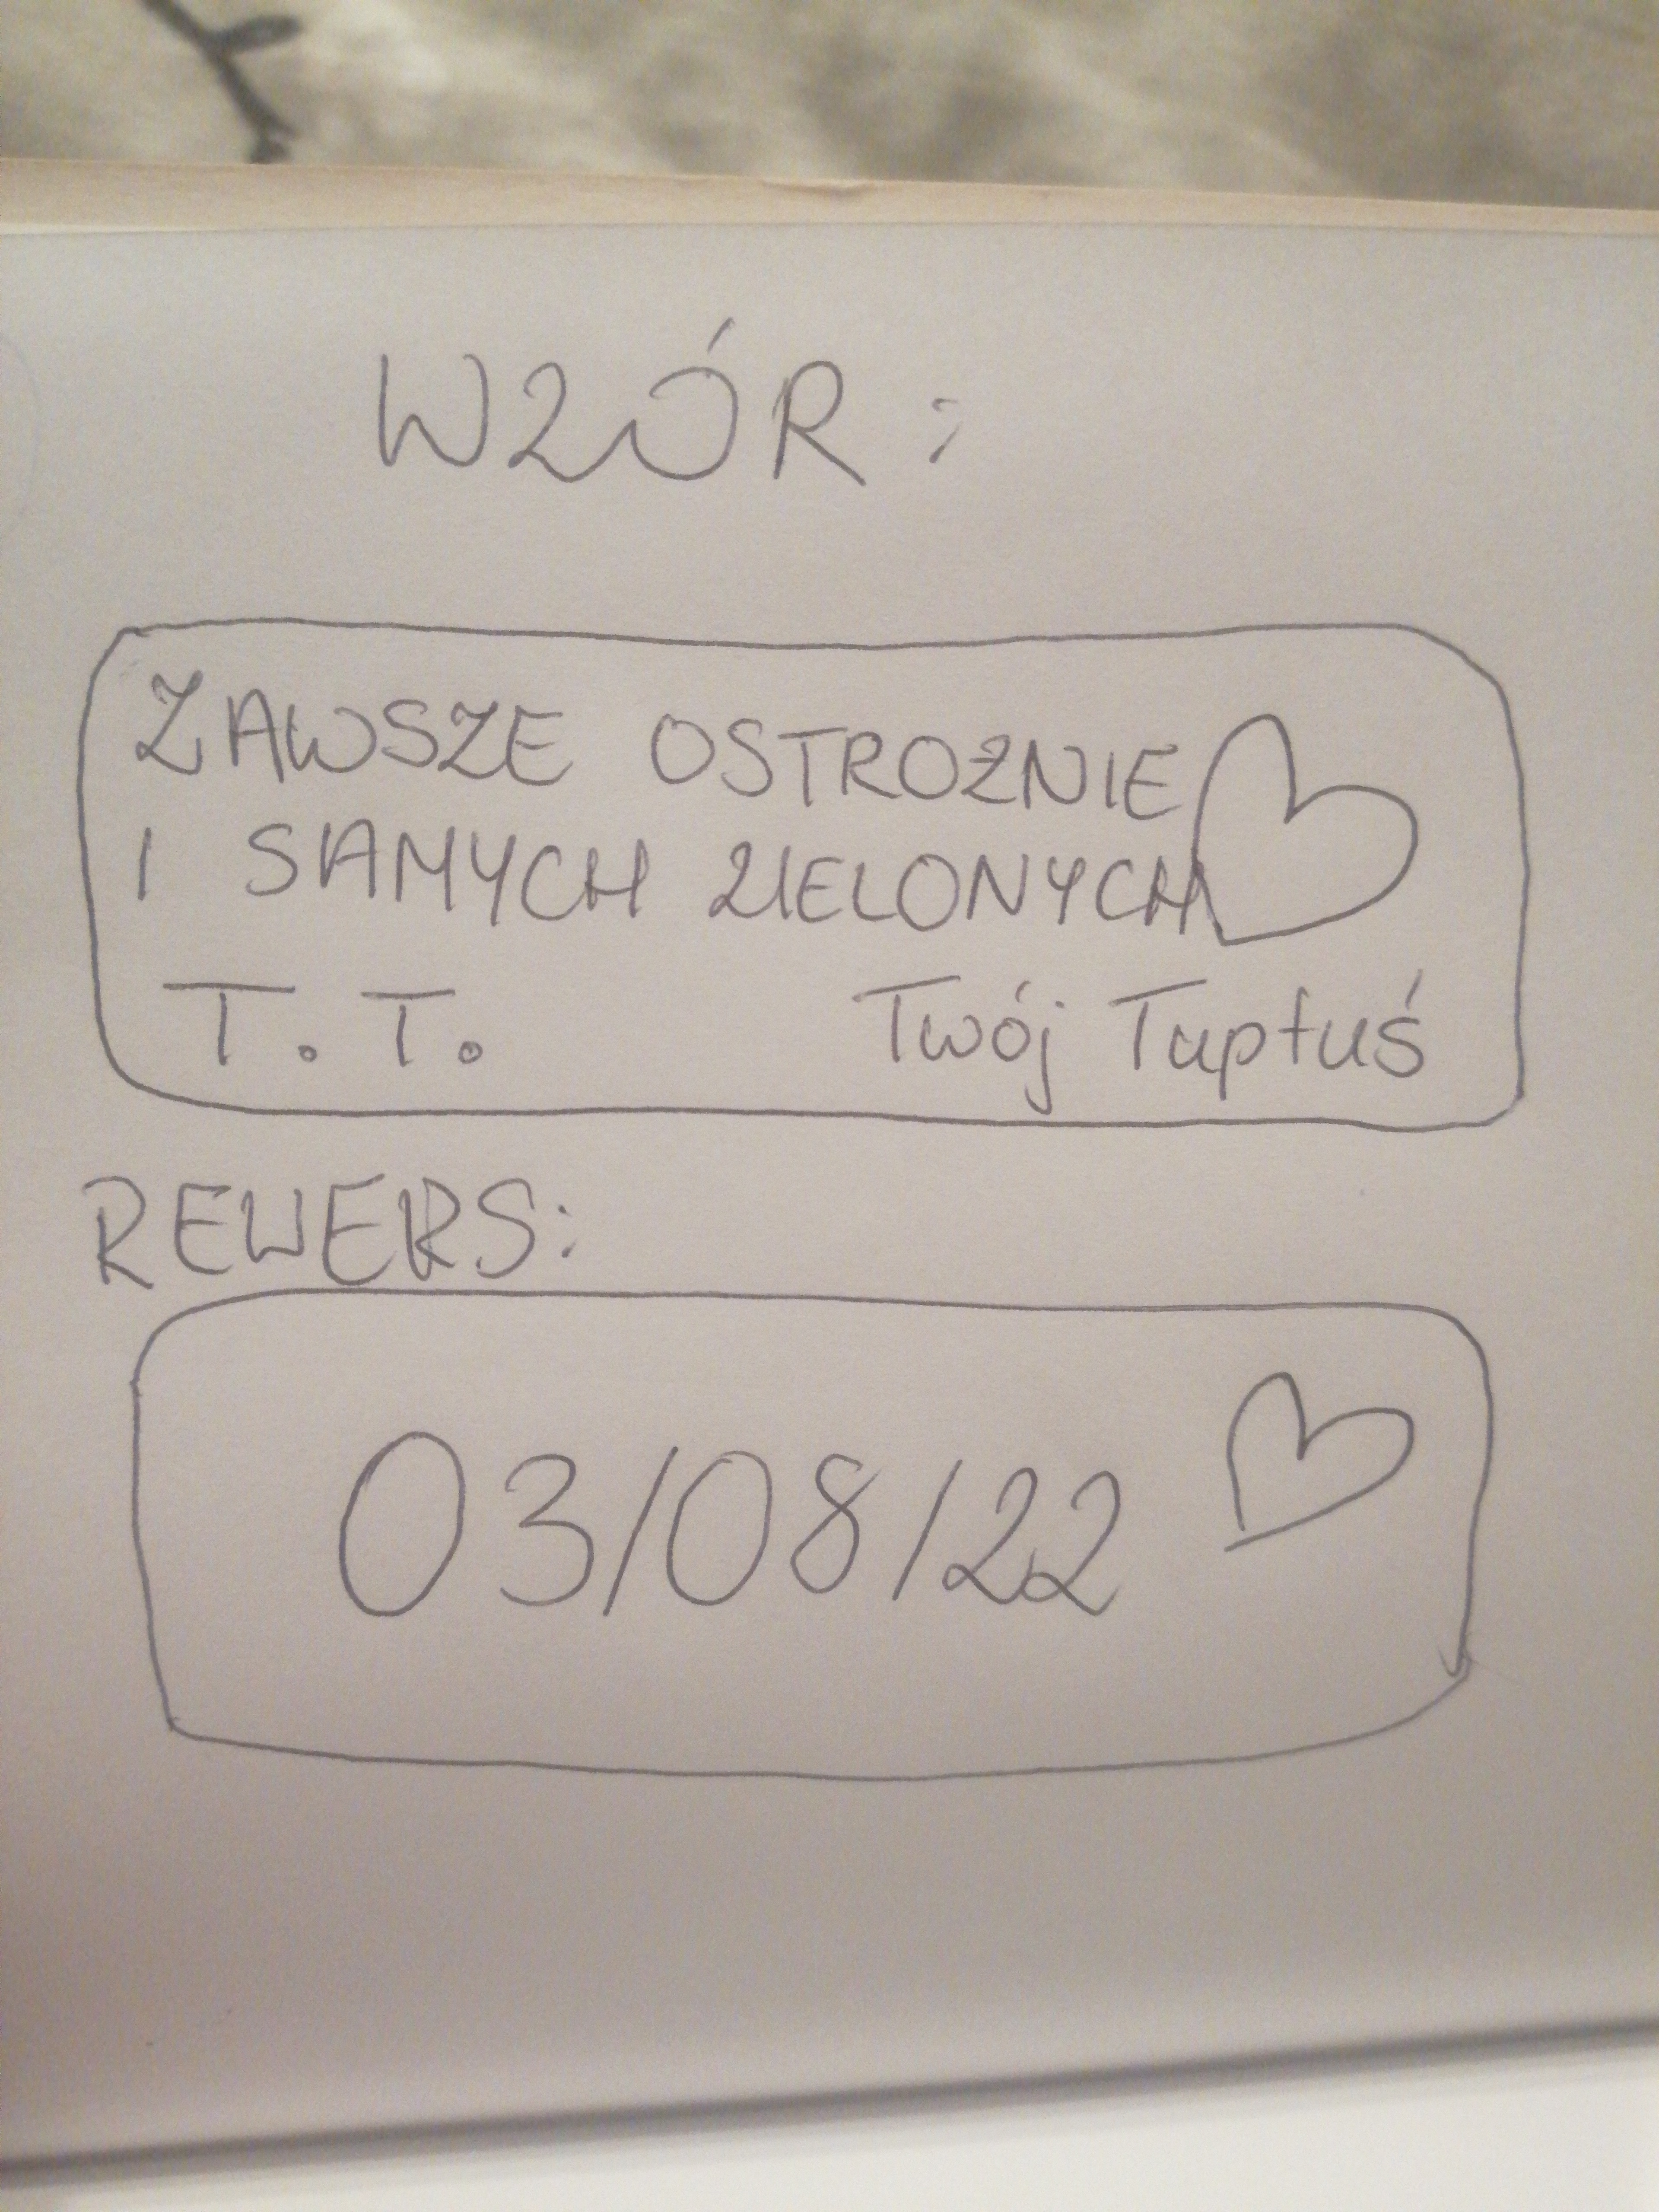 WZÓR:
ZAWSZE OSTROŻNIE
I SAMYCH ZIELONYCH
T. T. Twój Tuptuś
REWERS:
03/08/22